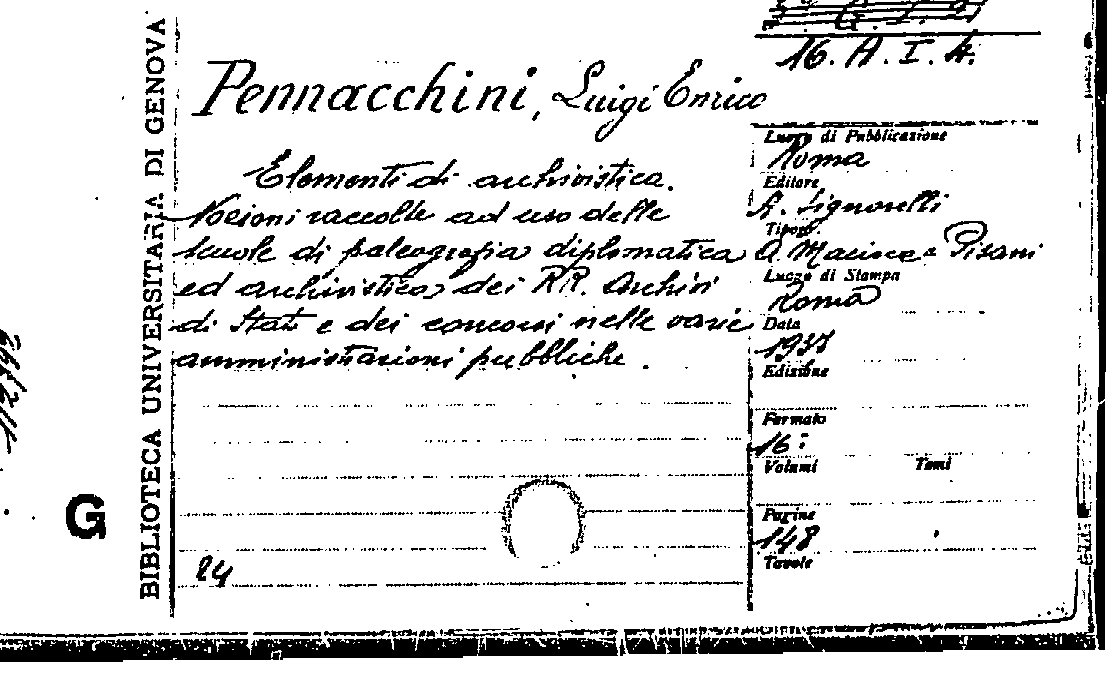 16. A. I. 4.
Pennacchini, Luigi Enrico
Elementi di archivistica.
Nozioni raccolte ad uso delle
scuole di paleografia diplomatica
ed archivistica dei RR. Archivi
di Stato e dei concorsi nelle varie
amministrazioni pubbliche.
24
Luogo di Pubblicazione
Roma
Editore
A. Signorelli
Tipogr.
Pisani
Luogo di Stampa
Roma
Data
1937
Edizione
Formato
16°
Volumi Tomi
Pagine
148
Tavole
BIBLIOTECA UNIVERSITARIA DI GENOVA
G